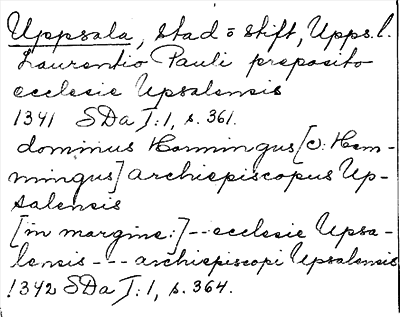 Uppsala, stad o stift, Upps. l.
Laurentio Pauli preposito
ecclesie Upsalensis
1341 SDa I:1, s. 361.
dominus Hamingus [o: Hem-
mingus] archiepiscopus Up-
salensis
[in margine:] -- ecclesie Upsa-
lensis --- archiepiscopi Upsalensis
1342 SDa I:1, s. 364.